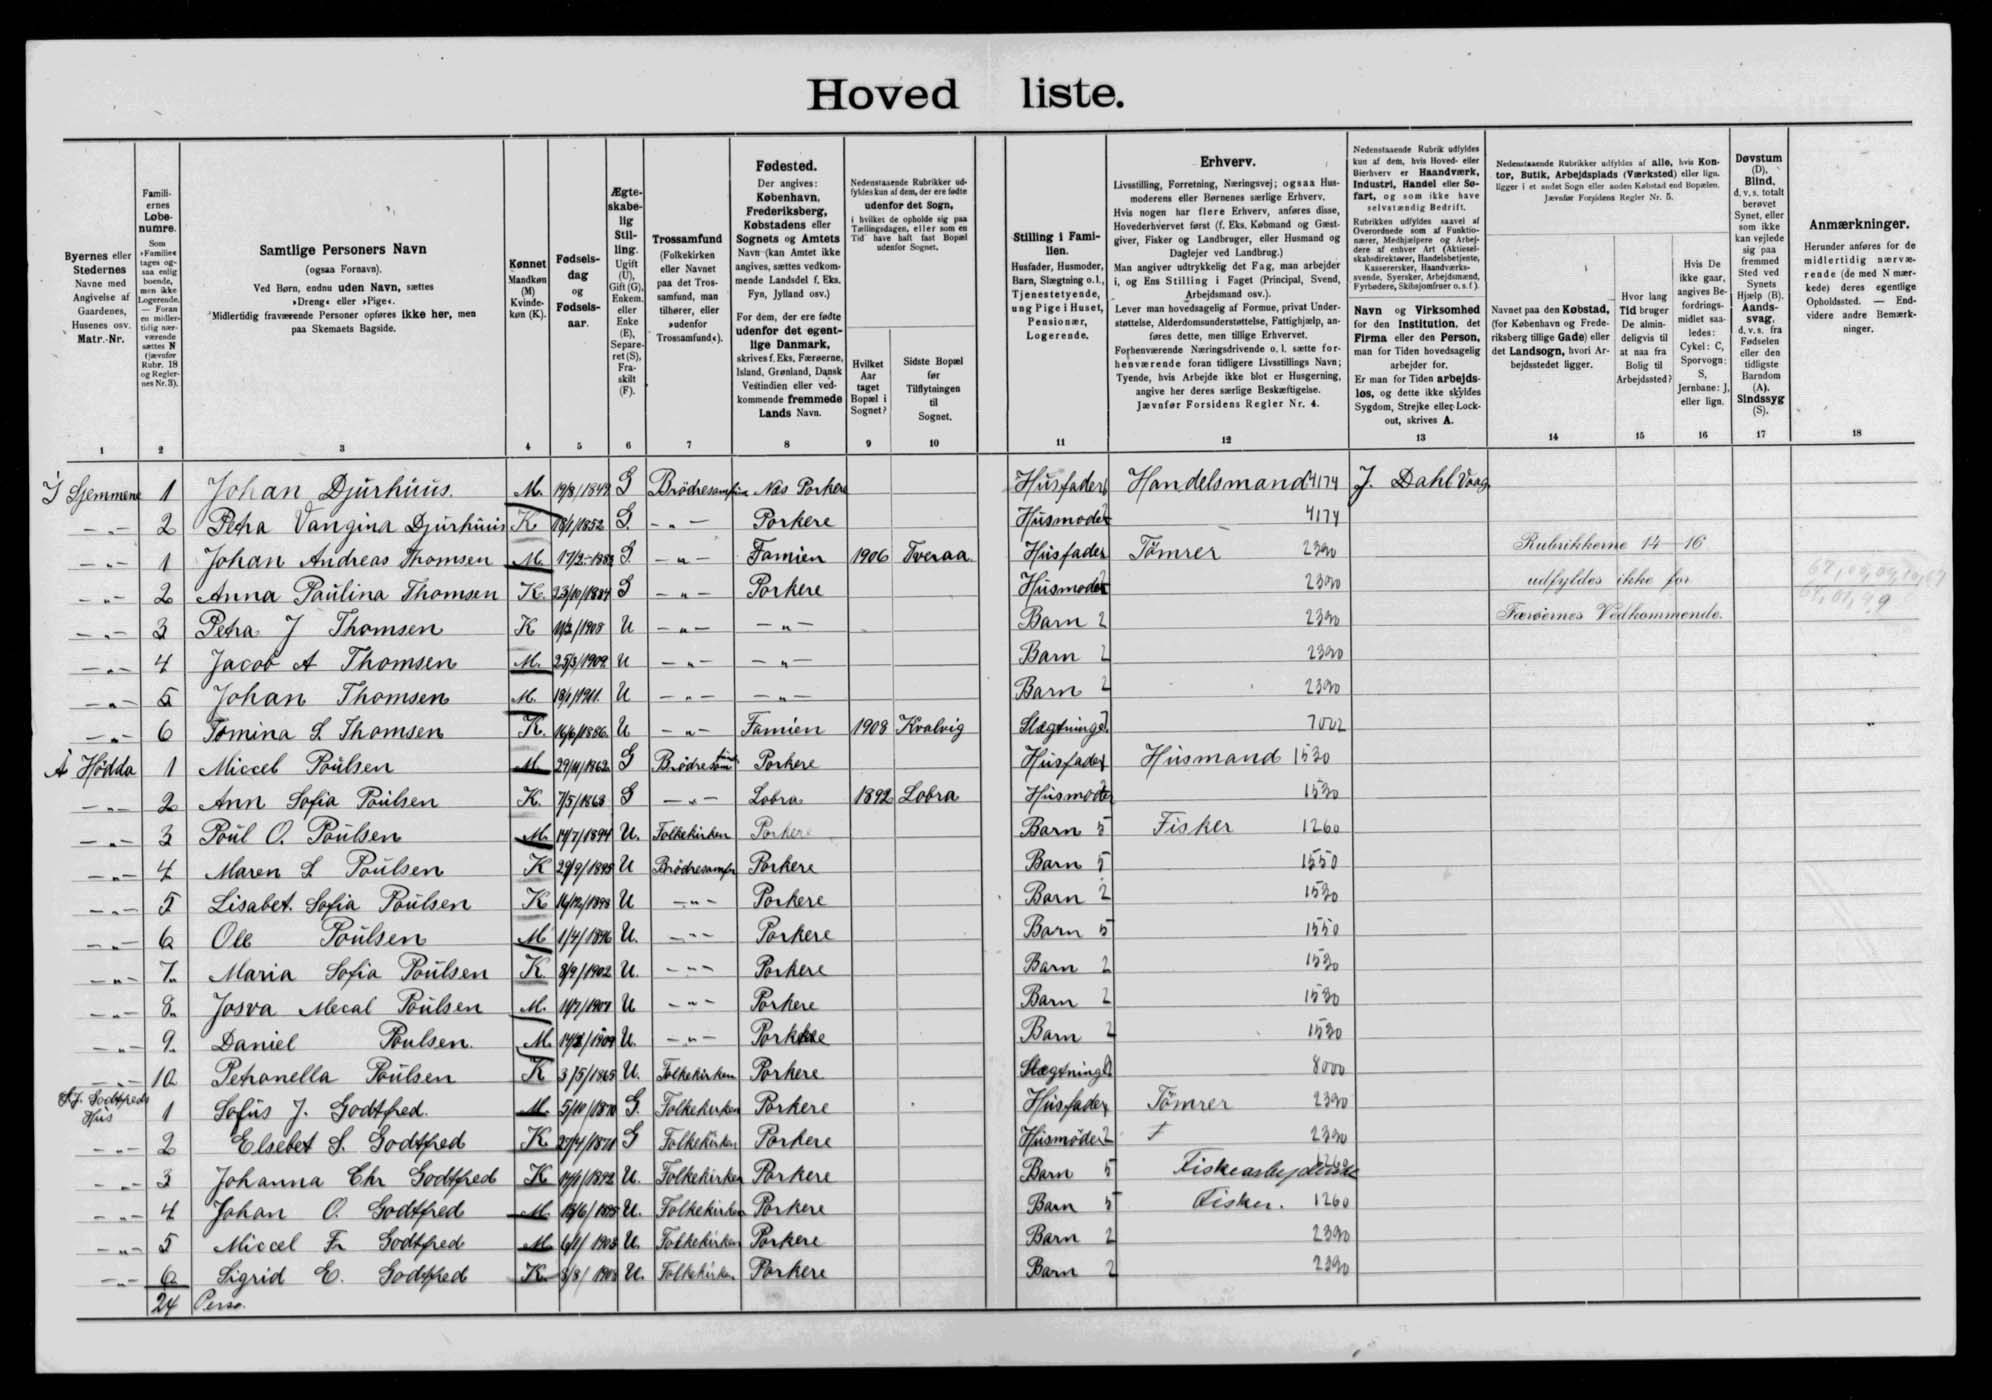 Hoved liste.
Byernes eller Stedernes Navne med Angivelse af Gaardenes, Husenes osv. Matr.-Nr.
Familiernes Løbenumre. Som »Familie« tages ogsaa enlig boende, men ikke Logerende. — Foran en midlertidig nærværende sættes N (jævnfør Rubr. 18 og Regler- nes Nr. 3).
Samtlige Personers Navn (ogsaa Fornavn). Ved Børn, endnu uden Navn, sættes »Dreng« eller »Pige«. Midlertidig fraværende Personer opføres ikke her, men paa Skemaets Bagside.
Kønnet Mandkøn (M) Kvindekøn (K).
Fødselsdag og Fødselsaar.
Ægteskabelig Stilling. Ugift (U), Gift (G), Enkem. eller Enke (E), Separeret (S), Fraskilt (F).
Trossamfund (Folkekirken eller Navnet paa det Trossamfund, man tilhører, eller »udenfor Trossamfund«).
Fødested. Der angives: København, Frederiksberg, Købstadens eller Sognets og Amtets Navn (kan Amtet ikke angives, sættes vedkommende Landsdel f. Eks. Fyn, Jylland osv.) For dem, der ere fødte udenfor det egentlige Danmark, skrives f. Eks. Færøerne, Island, Grønland, Dansk Vestindien eller vedkommende fremmede Lands Navn.
Nedenstaaende Rubrikker udfyldes kun af dem, der ere fødte udenfor det Sogn, i hvilket de opholde sig paa Tællingsdagen, eller som en Tid have haft fast Bopæl udenfor Sognet.
Hvilket Aar taget Bopæl i Sognet?
Sidste Bopæl før Tilflytningen til Sognet.
Stilling i Familien. Husfader, Husmoder, Barn, Slægtning o. l., Tjenestetyende, ung Pige i Huset, Pensionær, Logerende.
Erhverv. Livsstilling, Forretning, Næringsvej; ogsaa Husmoderens eller Børnenes særlige Erhverv. Hvis nogen har flere Erhverv, anføres disse, Hovederhvervet først (f. Eks. Købmand og Gæstgiver, Fisker og Landbruger, eller Husmand og Daglejer ved Landbrug.) Man angiver udtrykkelig det Fag, man arbejder i, og Ens Stilling i Faget (Principal, Svend, Arbejdsmand osv.). Lever man hovedsagelig af Formue, privat Understøttelse, Alderdomsunderstøttelse, Fattighjælp, anføres dette, men tillige Erhvervet. Forhenværende Næringsdrivende o. l. sætte forhenværende foran tidligere Livsstillings Navn; Tyende, hvis Arbejde ikke blot er Husgerning, angive her deres særlige Beskæftigelse. Jævnfør Forsidens Regler Nr. 4.
Nedenstaaende Rubrik udfyldes kun af dem, hvis Hoved- eller Bierhverv er Haandværk, Industri, Handel eller Søfart, og som ikke have selvstændig Bedrift. Rubrikken udfyldes saavel af Overordnede som af Funktionærer, Medhjælpere og Arbejdere af enhver Art (Aktieselskabsdirektører, Handelsbetjente, Kasserersker, Haandværkssvende, Syersker, Arbejdsmænd, Fyrbødere, Skibsjomfruer o. s. f.).
Navn og Virksomhed for den Institution, det Firma eller den Person, man for Tiden hovedsagelig arbejder for. Er man for Tiden arbejdsløs, og dette ikke skyldes Sygdom, Strejke eller Lockout, skrives A.
Nedenstaaende Rubrikker udfyldes af alle, hvis Kontor, Butik, Arbejdsplads (Værksted) eller lign. ligger i et andet Sogn eller anden Købstad end Bopælen. Jævnfør Forsidens Regler Nr. 5.
Navnet paa den Købstad, (for København og Frederiksberg tillige Gade) eller det Landsogn, hvori Arbejdsstedet ligger.
Hvor lang Tid bruger De almindeligvis til at naa fra Bolig til Arbejdssted?
Hvis De ikke gaar, angives Befordringsmidlet saaledes: Cykel: C, Sporvogn: S, Jernbane: J, eller lign.
Døvstum (D), Blind, d. v. s. totalt berøvet Synet, eller som ikke kan vejlede sig paa fremmed Sted ved Synets Hjælp (B). Aandssvag, d. v. s. fra Fødselen eller den tidligste Barndom (A). Sindssyg (S).
Anmærkninger. Herunder anføres for de midlertidig nærværende (de med N mærkede) deres egentlige Opholdssted. — Endvidere andre Bemærkninger.
1 2 3 4 5 6 7 8 9 10 11 12 13 14 15 16 17 18
Í Sjemmene 1 Johan Djurhuus. M. 19/8/1849 G Brödresamfun Næs Porkere Husfader Handelsmand 4174 J. Dahl Vaag
-"- 2 Petra Vangina Djurhuus K 18/1/1852 G. -"- Porkere Husmoder 4174
-"- 1 Johan Andreas Thomsen M. G. -"- Famien 1906 Tveraa Husfader Tömrer 2390 Rubrikkerne 14-16
-"- 2 Anna Paulina Thomsen K. 23/10/1884 G -"- Porkere Husmoder 2390 udfyldes ikke for
-"- 3 Petra J Thomsen K 1908 U -"- -"- Barn 2 2390 Færøernes Vedkommende.
-"- 4 Jacob A Thomsen M. 25/3/1909 U -"- -"- Barn 2 2390
-"- 5 Johan Thomsen M. 18/1/1911. U -"- -"- Barn 2 2390
-"- 6 Tomina S Thomsen K. 16/6/1886. U -"- Famien 1908 Kvalvig Slægtninge 7002
Á Hødda 1 Miccel Poulsen M 29/11/1862 G Brödresam Porkere Husfader Husmand 1530
-"- 2 Ann Sofia Poulsen K. 7/5/1863 G -"- Lobra 1892 Lobra Husmoder 1530
-"- 3 Poul O. Poulsen M. 14/7/1894 U. Folkekirken Porkere Barn 5 Fisker 1260
-"- 4 Maren S Poulsen K U Brödresamfn Porkere Barn 5 1550
-"- 5 Lisabet Sofia Poulsen K 16/12/1898 U -"- Porkere Barn 2 1530
-"- 6 Ole Poulsen M 1/4/1896 U. -"- Porkere Barn 5 1550
-"- 7. Maria Sofia Poulsen K. 8/9/1902 U. -"- Porkere Barn 2 1530
-"- 8. Josva Mecal Poulsen M. U -"- Porkere Barn 2 1530
-"- 9. Daniel Poulsen. M. U. -"- Porkere Barn 2 1530
-"- 10 Petranella Poulsen K 3/5/1865 U. Folkekirken Porkere Slægtning 8000
S.J. Godtfreds Hús 1 Sofus J. Godtfred. M. 5/10/1870 G. Folkekirken Porkere Husfader Tömrer 2390
-"- 2 Elsebet S. Godtfred K. 27/4/1871 G Folkekirken Porkere Husmöder 2 2390
-"- 3 Johanna Chr Godtfred K U. Folkekirken Porkere Barn 5 1260
-"- 4 Johan O. Godtfred M U. Folkekirken Porkere Barn 5 Fisker. 1260
-"- 5 Miccel Fr Godtfred M 6/1/1903 U. Folkekirken Porkere Barn 2 2390
-"- 6 Sigrid E. Godtfred K. 8/8/1908 U. Folkekirken Porkere Barn 2 2390
24 Perso.